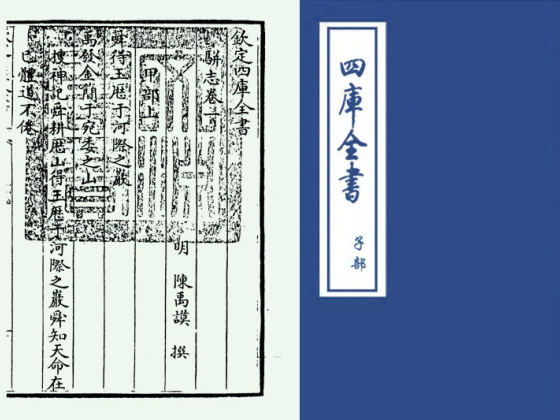 欽定四庫全書
駢志卷一
明 陳禹謨 撰
甲部上
舜得玉歷于河際之巖
禹發金簡于宛委之山
搜神記舜耕歷山得玉歷于河際之巖舜知天命在
已體道不倦
四庫全書
子部